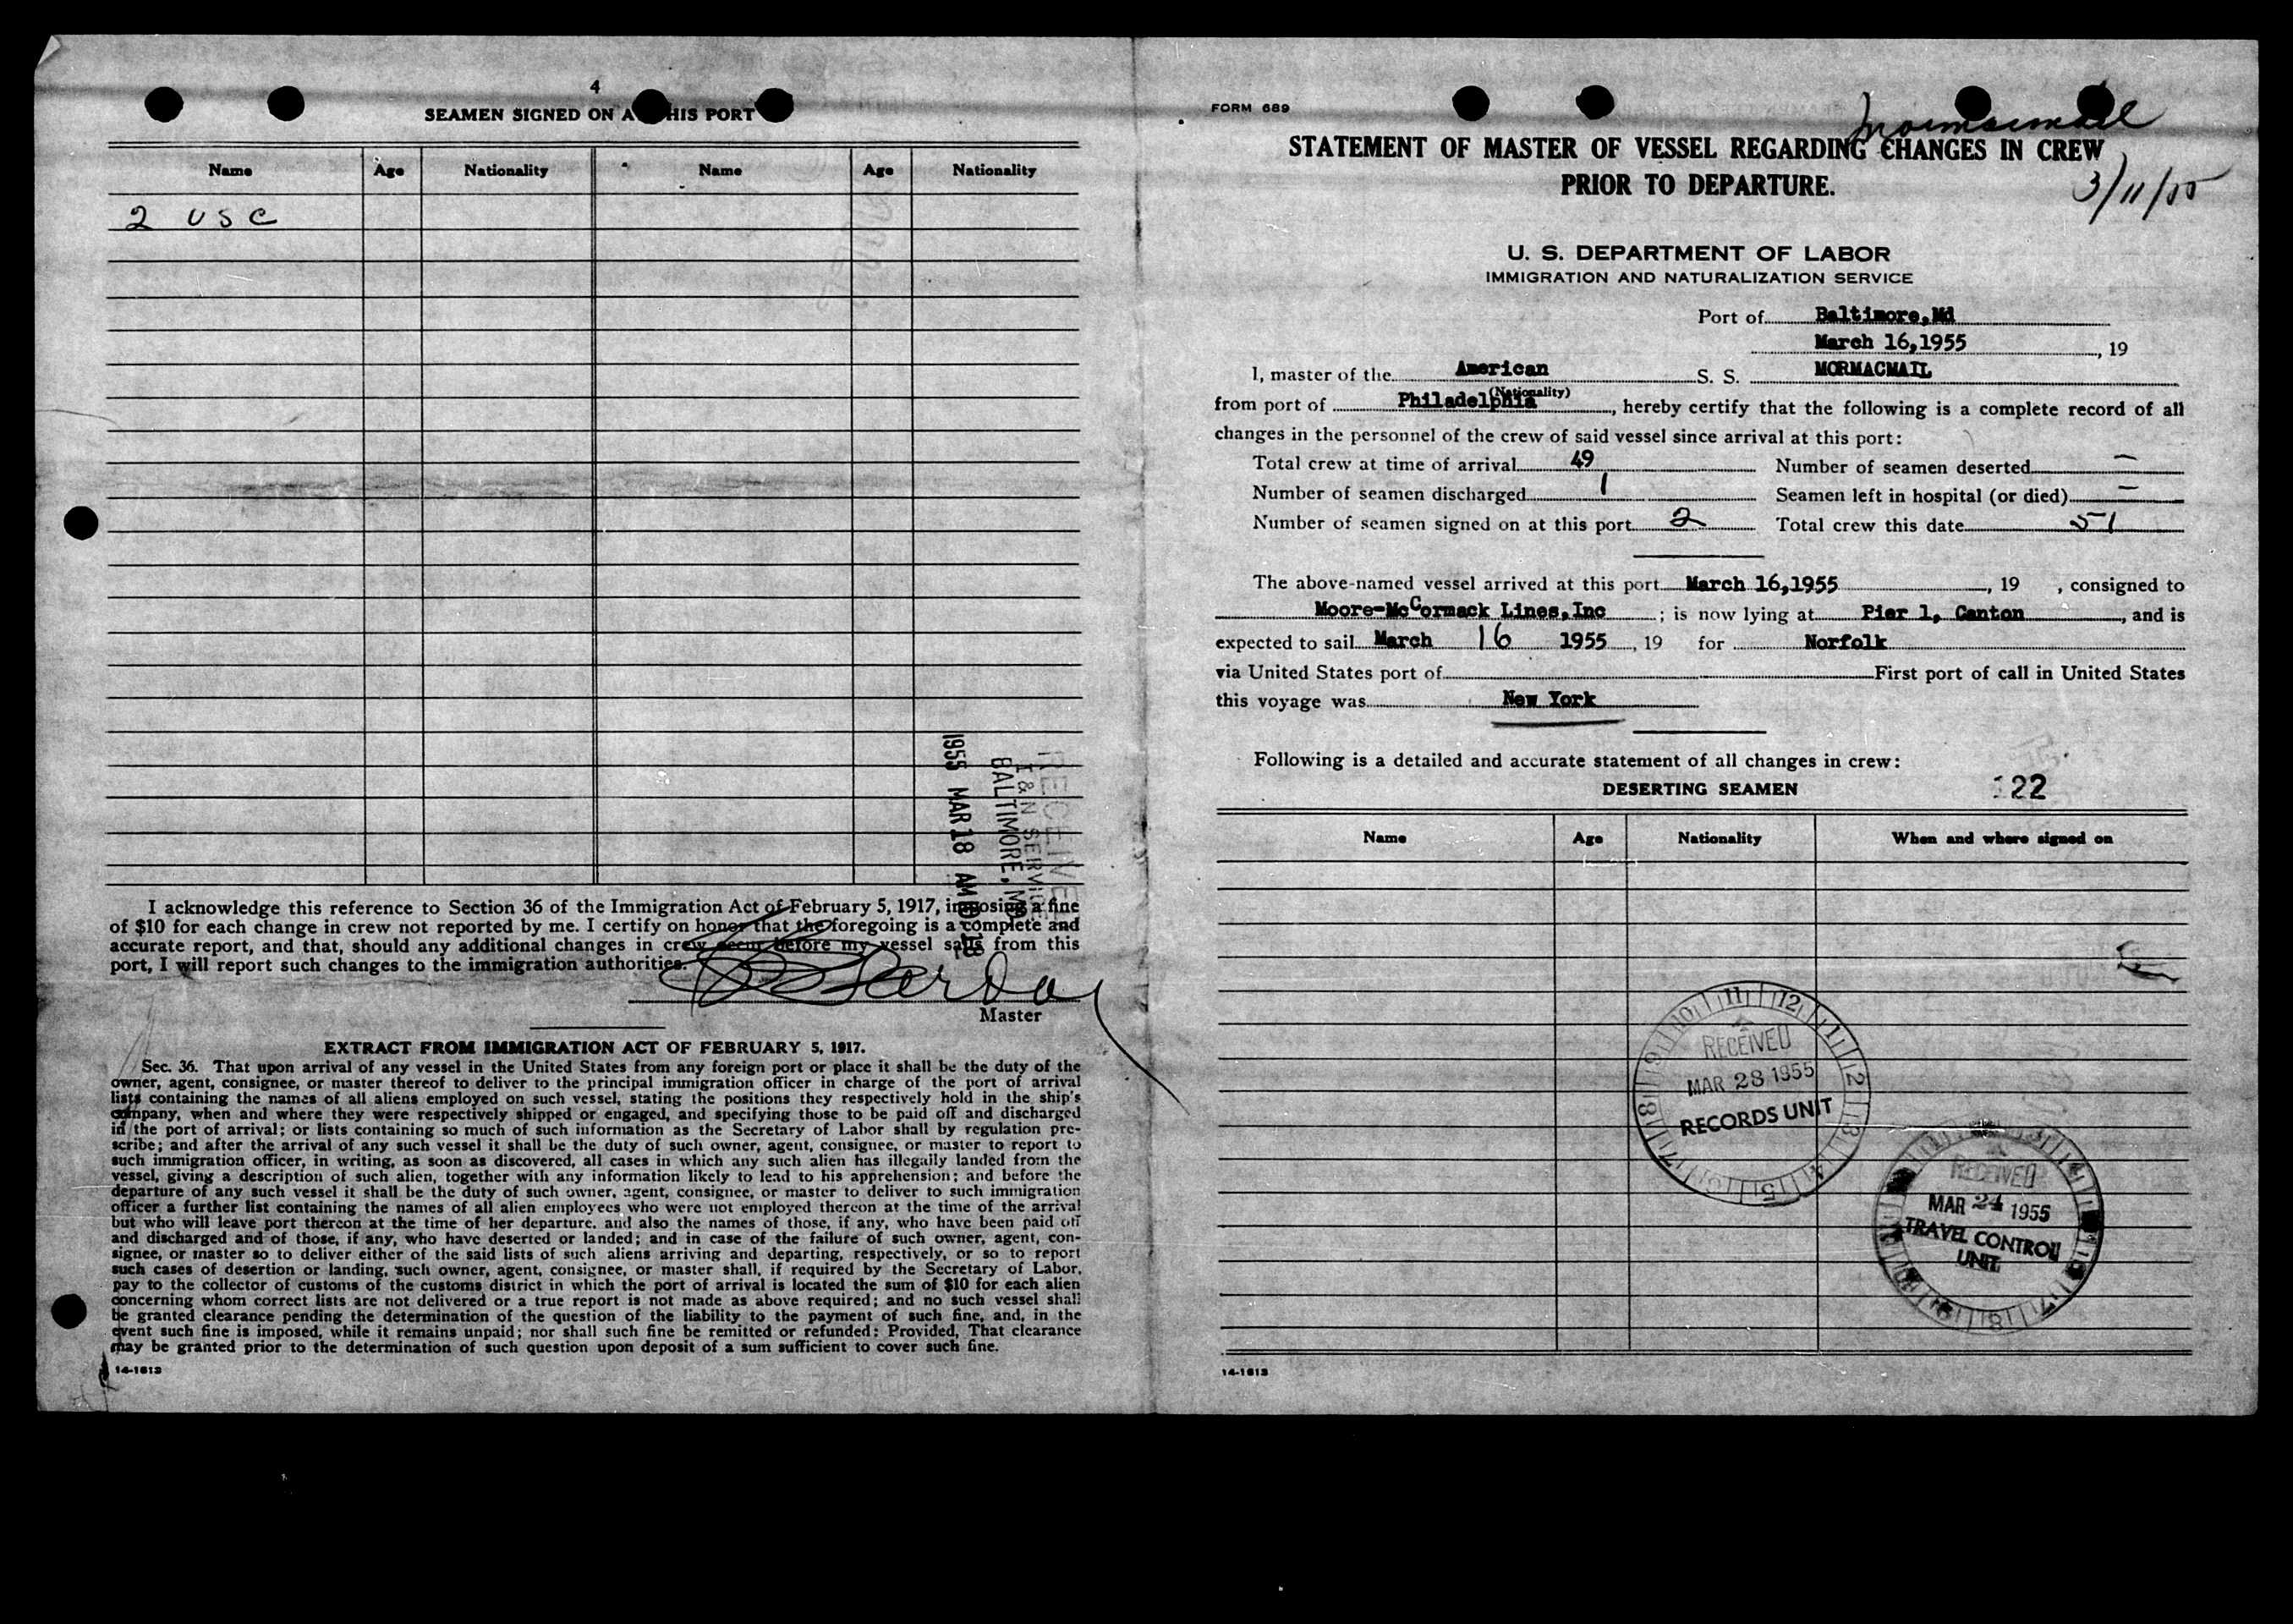 4
SEAMEN SIGNED ON A HIS PORT
Name Age Nationality Name Age Nationality
2 USC
RECEIVED
I & N SERVICE
BALTIMORE, MD.
1955 MAR 18 AM 10 18
I acknowledge this reference to Section 36 of the Immigration Act of February 5, 1917, imposing a fine
of $10 for each change in crew not reported by me. I certify on honor that the foregoing is a complete and
accurate report, and that, should any additional changes in crew occur before my vessel sails from this
port, I will report such changes to the immigration authorities.
Master
EXTRACT FROM IMMIGRATION ACT OF FEBRUARY 5, 1917.
Sec. 36. That upon arrival of any vessel in the United States from any foreign port or place it shall be the duty of the
owner, agent, consignee, or master thereof to deliver to the principal immigration officer in charge of the port of arrival
lists containing the names of all aliens employed on such vessel, stating the positions they respectively hold in the ship's
company, when and where they were respectively shipped or engaged, and specifying those to be paid off and discharged
in the port of arrival; or lists containing so much of such information as the Secretary of Labor shall by regulation pre-
scribe; and after the arrival of any such vessel it shall be the duty of such owner, agent, consignee, or master to report to
such immigration officer, in writing, as soon as discovered, all cases in which any such alien has illegally landed from the
vessel, giving a description of such alien, together with any information likely to lead to his apprehension; and before the
departure of any such vessel it shall be the duty of such owner, agent, consignee, or master to deliver to such immigration
officer a further list containing the names of all alien employees who were not employed thereon at the time of the arrival
but who will leave port thereon at the time of her departure, and also the names of those, if any, who have been paid off
and discharged and of those, if any, who have deserted or landed; and in case of the failure of such owner, agent, con-
signee, or master so to deliver either of the said lists of such aliens arriving and departing, respectively, or so to report
such cases of desertion or landing, such owner, agent, consignee, or master shall, if required by the Secretary of Labor,
pay to the collector of customs of the customs district in which the port of arrival is located the sum of $10 for each alien
concerning whom correct lists are not delivered or a true report is not made as above required; and no such vessel shall
be granted clearance pending the determination of the question of the liability to the payment of such fine, and, in the
event such fine is imposed, while it remains unpaid; nor shall such fine be remitted or refunded: Provided, That clearance
may be granted prior to the determination of such question upon deposit of a sum sufficient to cover such fine.
14-1613
FORM 689
Mormacmail
STATEMENT OF MASTER OF VESSEL REGARDING CHANGES IN CREW
PRIOR TO DEPARTURE.
3/11/55
U. S. DEPARTMENT OF LABOR
IMMIGRATION AND NATURALIZATION SERVICE
Port of Baltimore,Md
March 16,1955 , 19
I, master of the American S. S. MORMACMAIL
(Nationality)
from port of Philadelphia , hereby certify that the following is a complete record of all
changes in the personnel of the crew of said vessel since arrival at this port:
Total crew at time of arrival 49 Number of seamen deserted —
Number of seamen discharged 1 Seamen left in hospital (or died) —
Number of seamen signed on at this port 2 Total crew this date 51
The above-named vessel arrived at this port March 16,1955 , 19 , consigned to
Moore-McCormack Lines,Inc ; is now lying at Pier 1, Canton , and is
expected to sail March 16 1955 , 19 for Norfolk
via United States port of First port of call in United States
this voyage was New York
Following is a detailed and accurate statement of all changes in crew:
DESERTING SEAMEN 22
Name Age Nationality When and where signed on
RECEIVED
MAR 28 1955
RECORDS UNIT
RECEIVED
MAR 24 1955
TRAVEL CONTROL
UNIT
14-1613